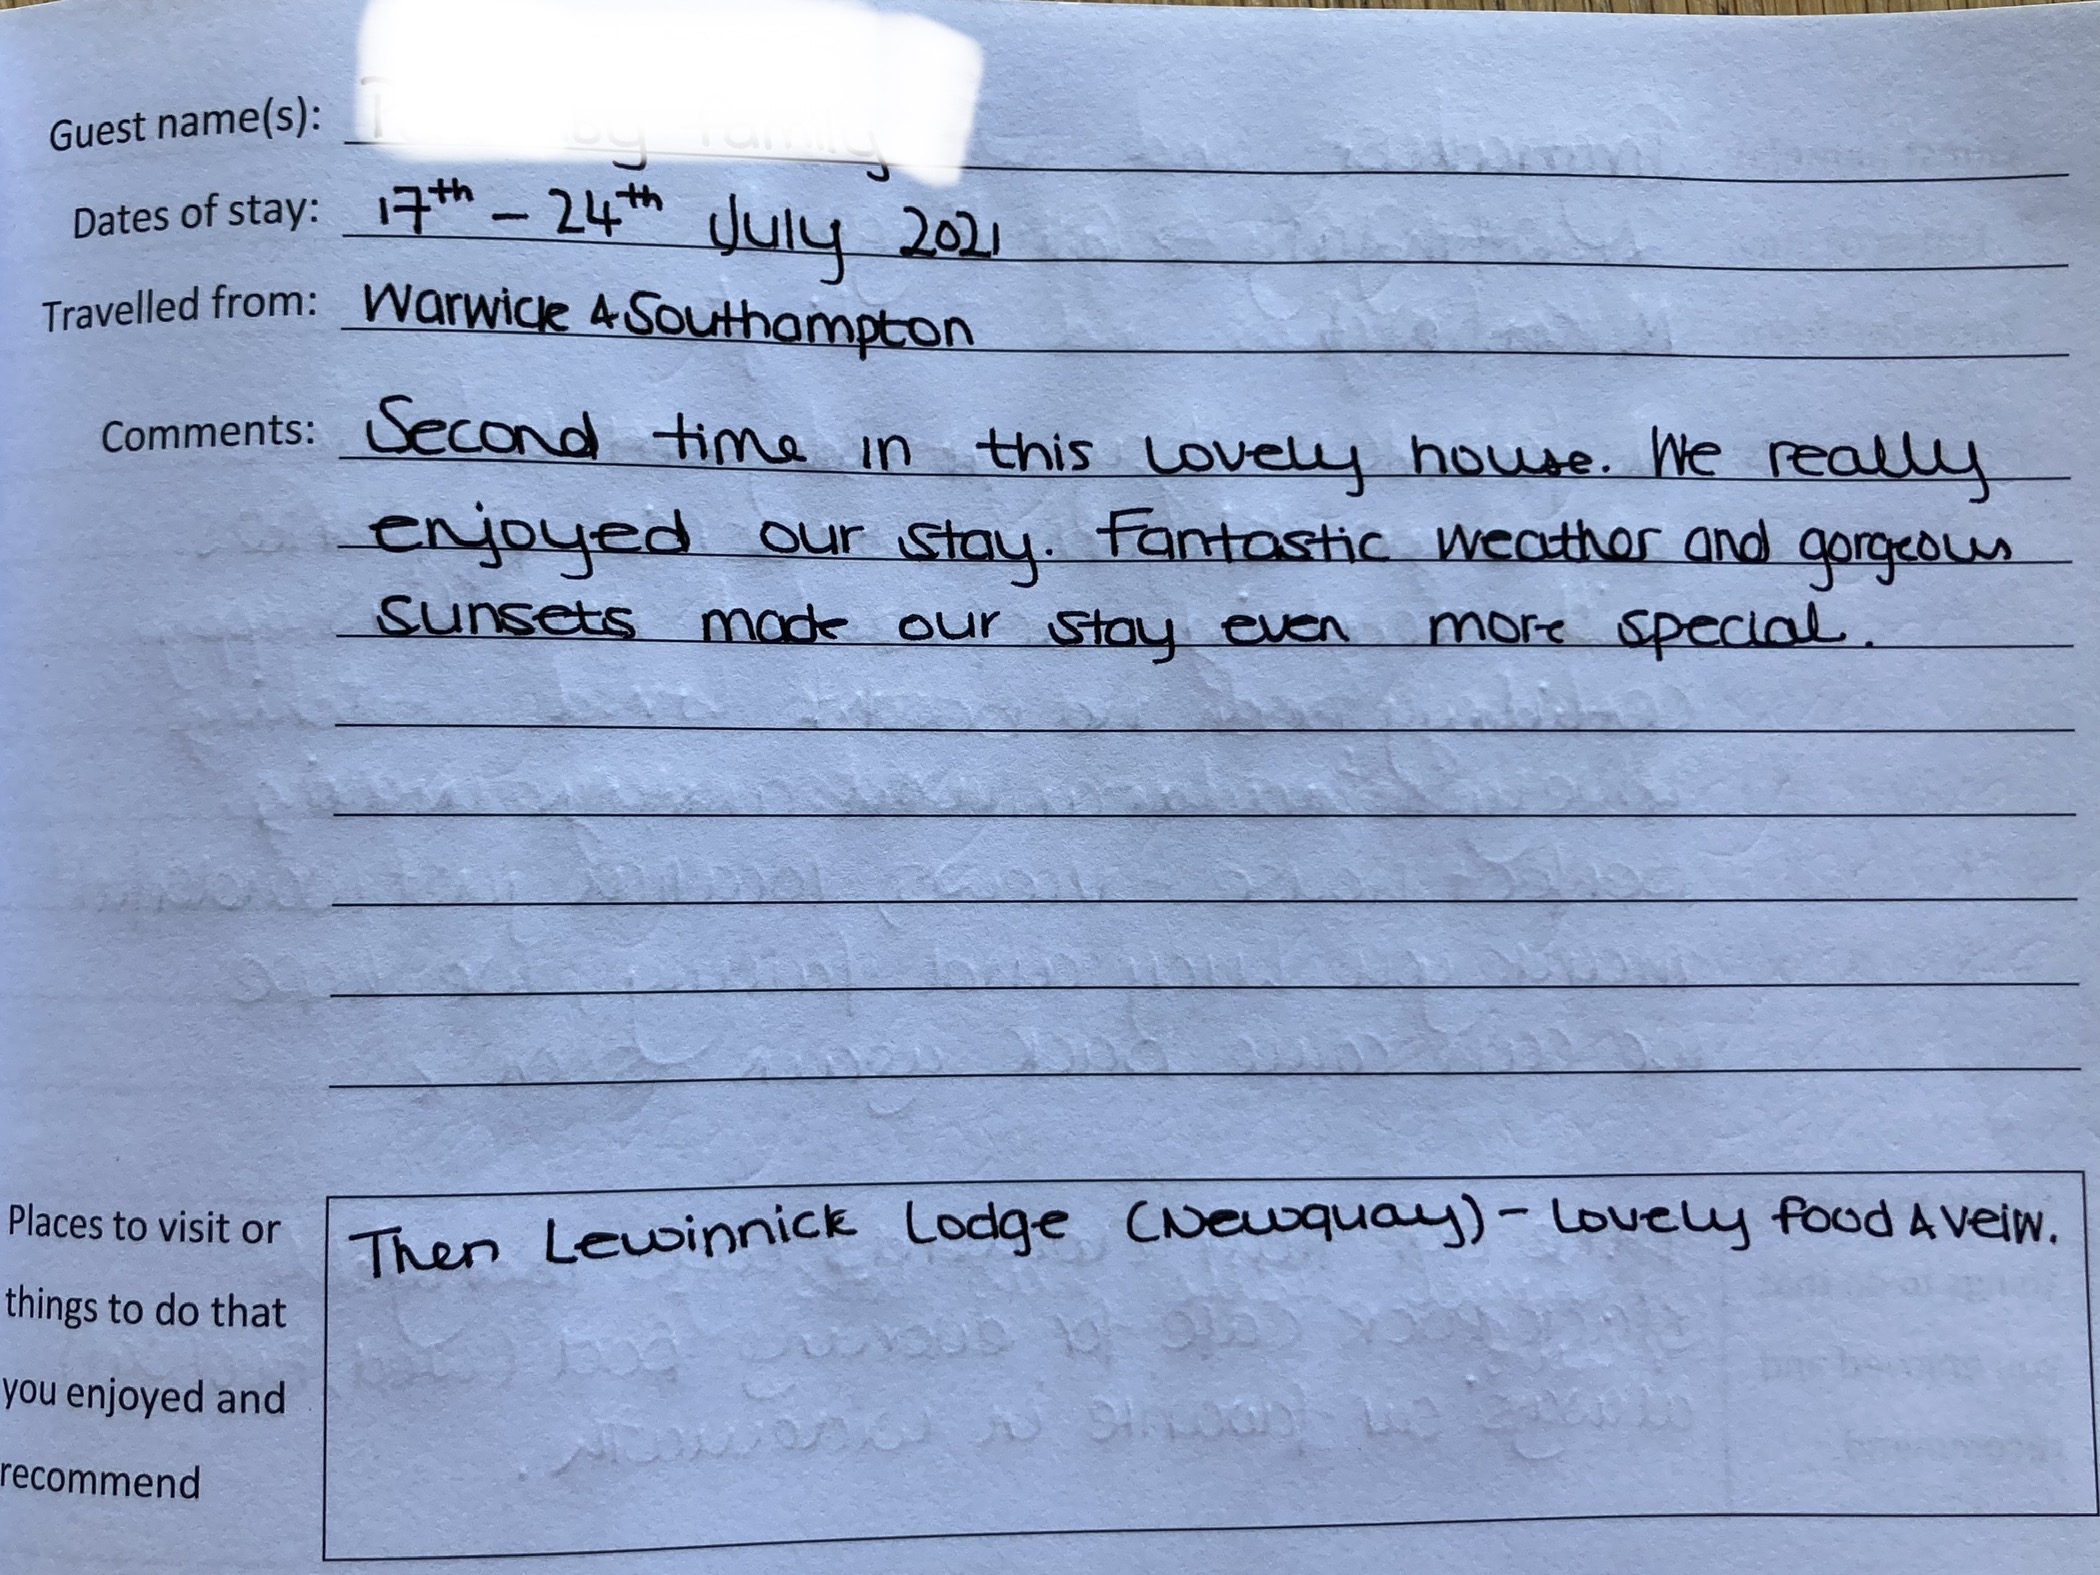 Guest name(s): family
Dates of stay: 17th - 24th July 2021
Travelled from: Warwick & Southampton
Comments: Second time in this lovely house. We really
enjoyed our stay. Fantastic weather and gorgeous
sunsets made our stay even more special.
Places to visit or
things to do that
you enjoyed and
recommend
Then Lewinnick Lodge (Newquay) - Lovely food & veiw.